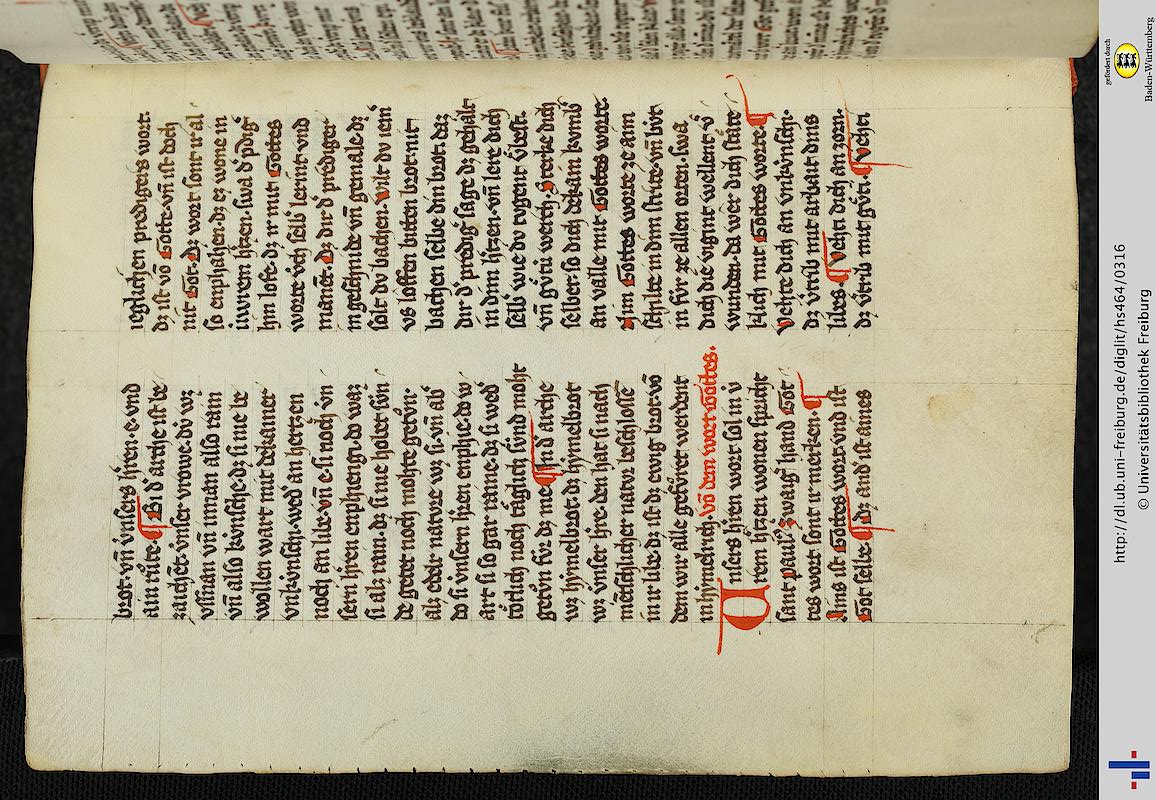 brot. vn̄ vnsers h̄ren. e. vnd
ain růte ¶ Bi d' arche ist be
zaichēt vnser vrowe. dv́ wz
vsnan vn̄ innan also rain
vn̄ also kv́nsche. dz si nie be
wollen wart mit dekainer
vnkv́nsch. wed' an hertzen
noch an libe. vn̄ e. si noch vn
sern h̄ren enphieng. do waz
si alz rain. dz si nie holer sv́n
de getet noch mohte getůn.
alz edel nature wz si. vn̄ alb
do si vnsern h̄ren enphie. do w
art si so gar raine. dz si wed'
tötlich noch täglich sv́nd moht
getůn fv́r dz me ¶ Jn d' arche
wz hymelbrot. dz hymelbrot
wz vnser h̄re. den hat si nach
mēschlicher natur beschlossē
in ir libe. dz ist dz ewig brot. vō
dem wir alle gefv́ret werdent
in hymelrich. vō dem wort gottes.
Vnsers h̄ren wort sol in v́
rem h̄tzen wonen spricht
sant paul'. Zwaig' hand Got
tes wort sont ir merken. ¶
Ains ist Gottes wort. vnd ist
Got selbe ¶ Dz and' ist aines
ieglichen predigers wort.
dz ist vō Gotte. vn̄ ist doch
nit Got. Dz wort sont ir al
so enphahen. dz ez wone in
iuwrem h̄tzen. swa d' pdig'
h̄n lose. dz ir mit Gottes
worte v́ch selb' lerint vnd
manēt. Dz dir d' prediger
in geschnide vn̄ gemale. dz
solt du bachen. wilt du iem'
vs lossen bitten brot. nit
bachen selbe din brot. daz
dir d' predig' sage. dz gehalt
in dim h̄tzen. vn̄ lere dich
selb' wie du tugent v́best.
vn̄ gůtú werch. Sterke dich
selber. so dich dekain kumb'
an valle mit Gottes worte.
Nim Gottes worte ze aim
schilte in dem strite. vn̄ bv́t
in fv́r ze allen orten. swa
dich die vigint wellent v'
wunden. da wer dich stäte
klich mit Gottes worte. ¶
Vehte dich an vnkv́nsch.
dz v'trib mit arbait dins
libes. ¶ Veht dich an zorn.
dz v'trib mit gůti. ¶ Veht
http://dl.ub.uni-freiburg.de/diglit/hs464/0316
© Universitätsbibliothek Freiburg
gefördert durch
Baden-Württemberg